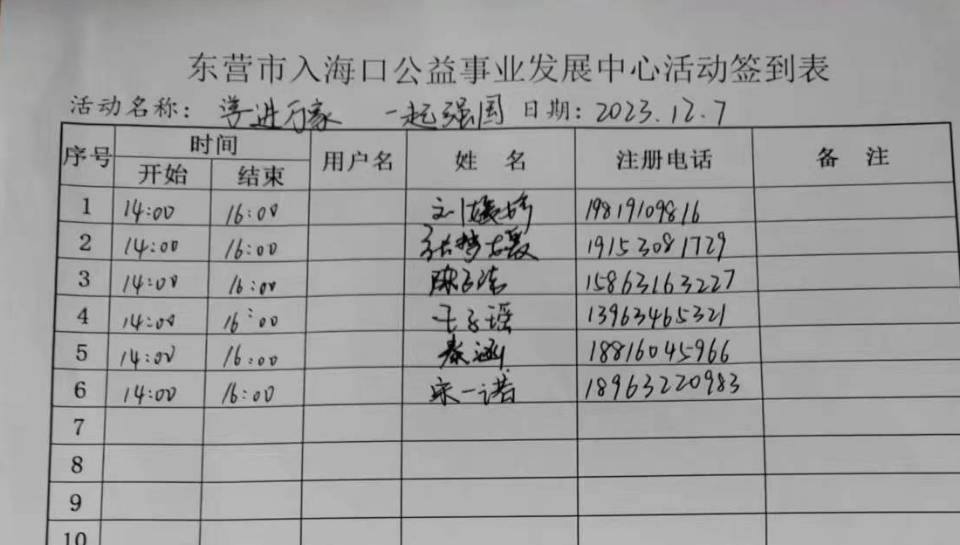 东营市入海口公益事业发展中心活动签到表
活动名称：学进万家 一起强国 日期：2023.12.7
序号 时间 用户名 姓名 注册电话 备注
开始 结束
1 14:00 16:00 19819109816
2 14:00 16:00 19153081729
3 14:00 16:00 15863163227
4 14:00 16:00 子瑶 13963465321
5 14:00 16:00 秦涵 18816045966
6 14:00 16:00 宋一诺 18963220983
7
8
9
10